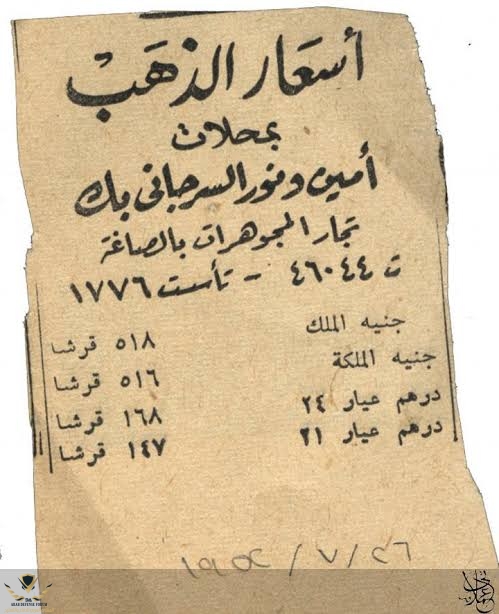 أسعار الذهب
بمحلات
أمين ونور السرجانى بك
تجار المجوهرات بالصاغة
ت ٤٦٠٤٤ - تأسست ١٧٧٦
جنيه الملك ٥١٨ قرشا
جنيه الملكة ٥١٦ قرشا
درهم عيار ٢٤ ١٦٨ قرشا
درهم عيار ٢١ ١٤٧ قرشا
٢٦ / ٧ /